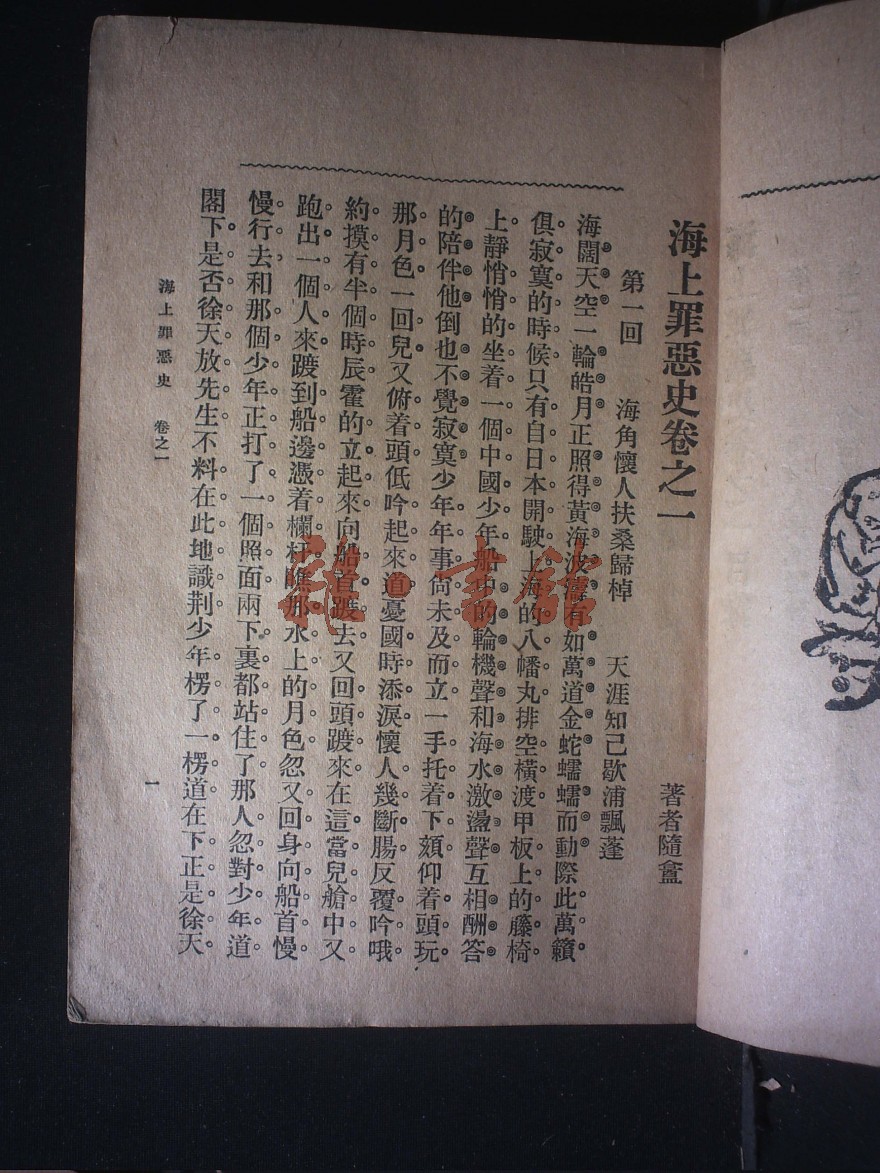 海上罪惡史卷之一
著者隨盦
第一回 海角懷人扶桑歸棹 天涯知己歇浦飄蓬
海闊天空一輪皓月正照得黃海波濤有如萬道金蛇蠕蠕而動際此萬籟
俱寂寞的時候只有自日本開駛上海的八幡丸排空橫渡甲板上的藤椅
上靜悄悄的坐着一個中國少年船中的輪機聲和海水激盪聲互相酬答
的陪伴他倒也不覺寂寞少年年事尙未及而立一手托着下頦仰着頭玩
那月色一回兒又俯着頭低吟起來道憂國時添淚懷人幾斷腸反覆吟哦
約摸有半個時辰霍的立起來向船首踱去又回頭踱來在這當兒艙中又
跑出一個人來踱到船邊憑着欄杆瞧那水上的月色忽又回身向船首慢
慢行去和那個少年正打了一個照面兩下裏都站住了那人忽對少年道
閣下是否徐天放先生不料在此地識荆少年楞了一楞道在下正是徐天
海上罪惡史 卷之一
一
雜·書館